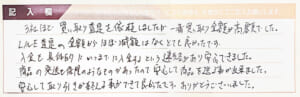 記入欄
3社ほど買い取り査定を依頼しましたが一番買い取り金額が高額でした。
LINE査定の金額からほぼ減額はなくとても良かったです。
入金も長期間かかってすぐに入金するという連絡があり安心できました。
商品の発送も保険のようなものがあったので安心して商品を送る事が出来ました。
安心して取り引きが終える事ができて良かったです。ありがとうございました。